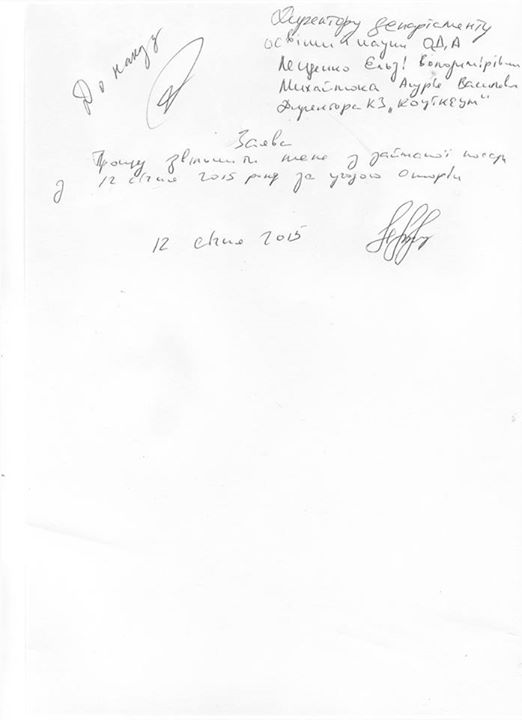 До наказу
Директору департаменту
освіти і науки ОДА
Лещенко Ользі Володимирівні
Михайлюка Андрія Васильовича
Директора КЗ
Заява
Прошу звільнити мене з займаної посади
з 12 січня 2015 року за угодою сторін
12 січня 2015